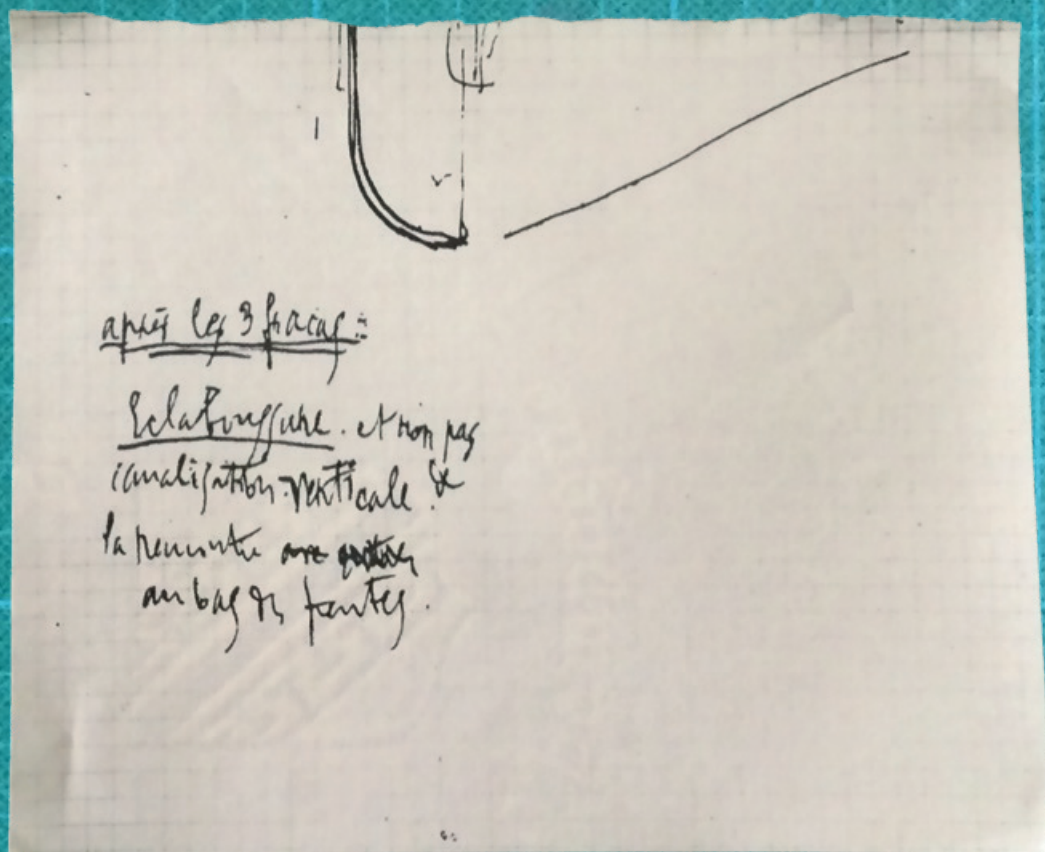 après les 3 fracas :
Eclaboussure. et non pas
canalisation verticale de
la rencontre
au bas des pentes.